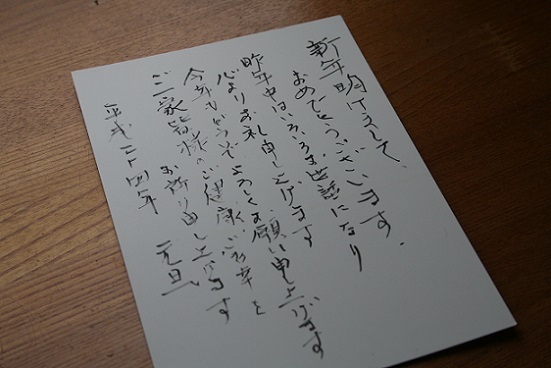 新年明けまして、
おめでとうございます。
昨年中はいろいろお世話になり
心よりお礼申し上げます
今年もどうぞよろしくお願い申し上げます
ご家皆様のご健康、ご多幸を
お祈り申し上げます
平成二十四年 元旦